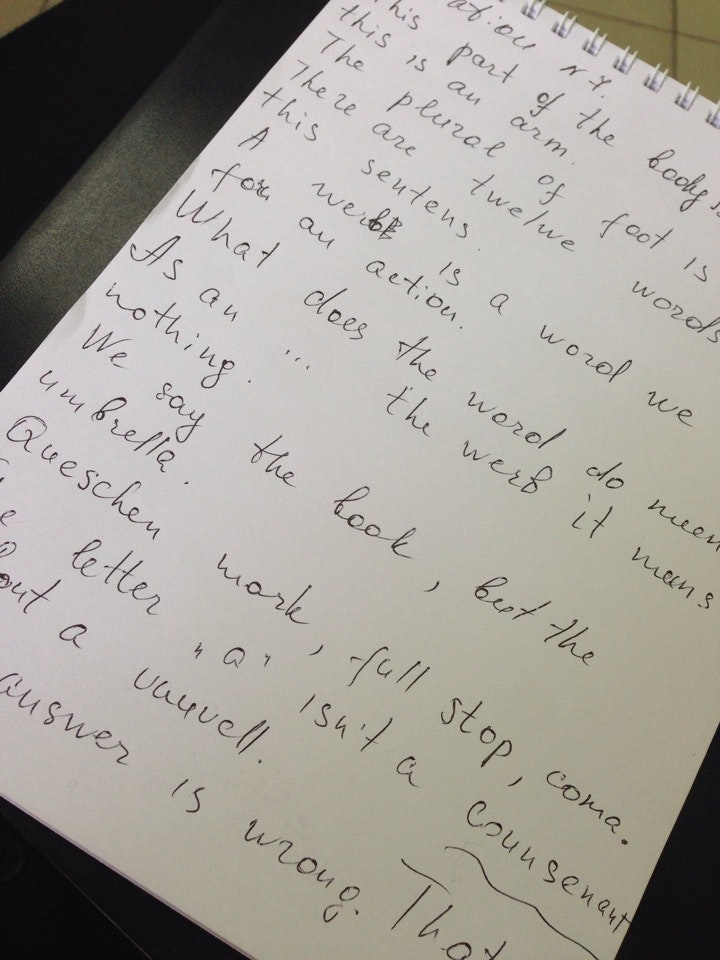 ation N 7.
his part of the body
this is an arm.
The plural of foot is
There are twelve words
this sentens.
A werb is a word we
for an action.
What does the word do meen
As an ... the werb it mens
nothing.
We say the book, but the
umbrella.
Queschen mark, full stop, coma.
e letter "a" isn't a counsenant
but a vauvell.
answer is wrong. That